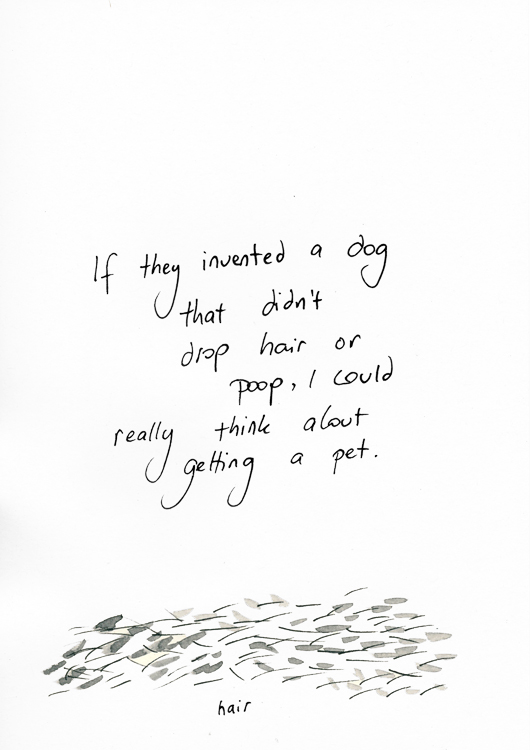 If they invented a dog
that didn't
drop hair or
poop, I could
really think about
getting a pet.
hair